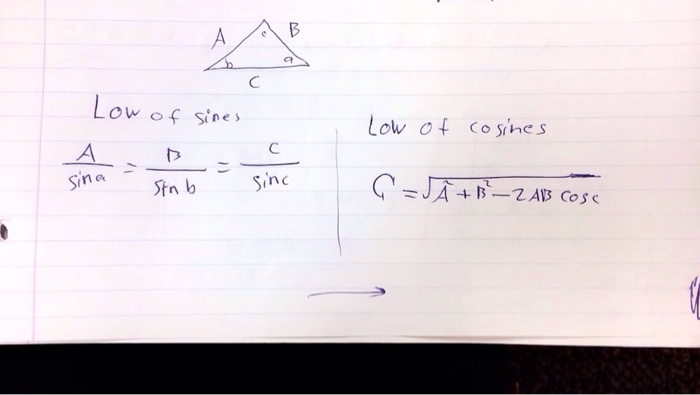 A B
c
b a
C
Low of sines
A/sin a = B/sin b = C/sin c
Low of cosines
C = √A² + B² - 2AB cos c